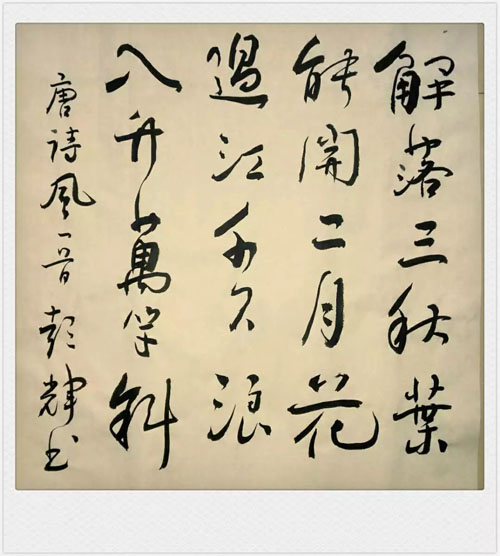 解落三秋葉
能開二月花
過江千尺浪
入竹萬竿斜
唐詩風一首彭輝书